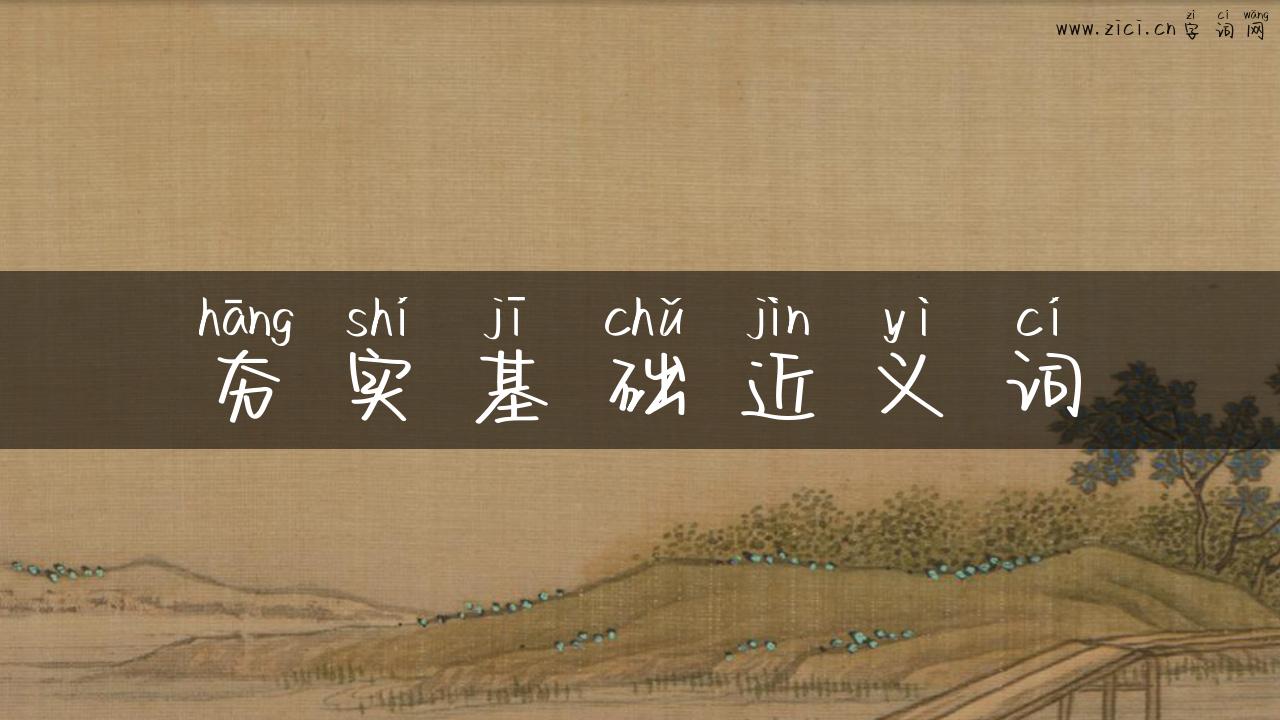 zì cí wǎng
www.zici.cn字词网
hāng shí jī chǔ jìn yì cí
夯实基础近义词